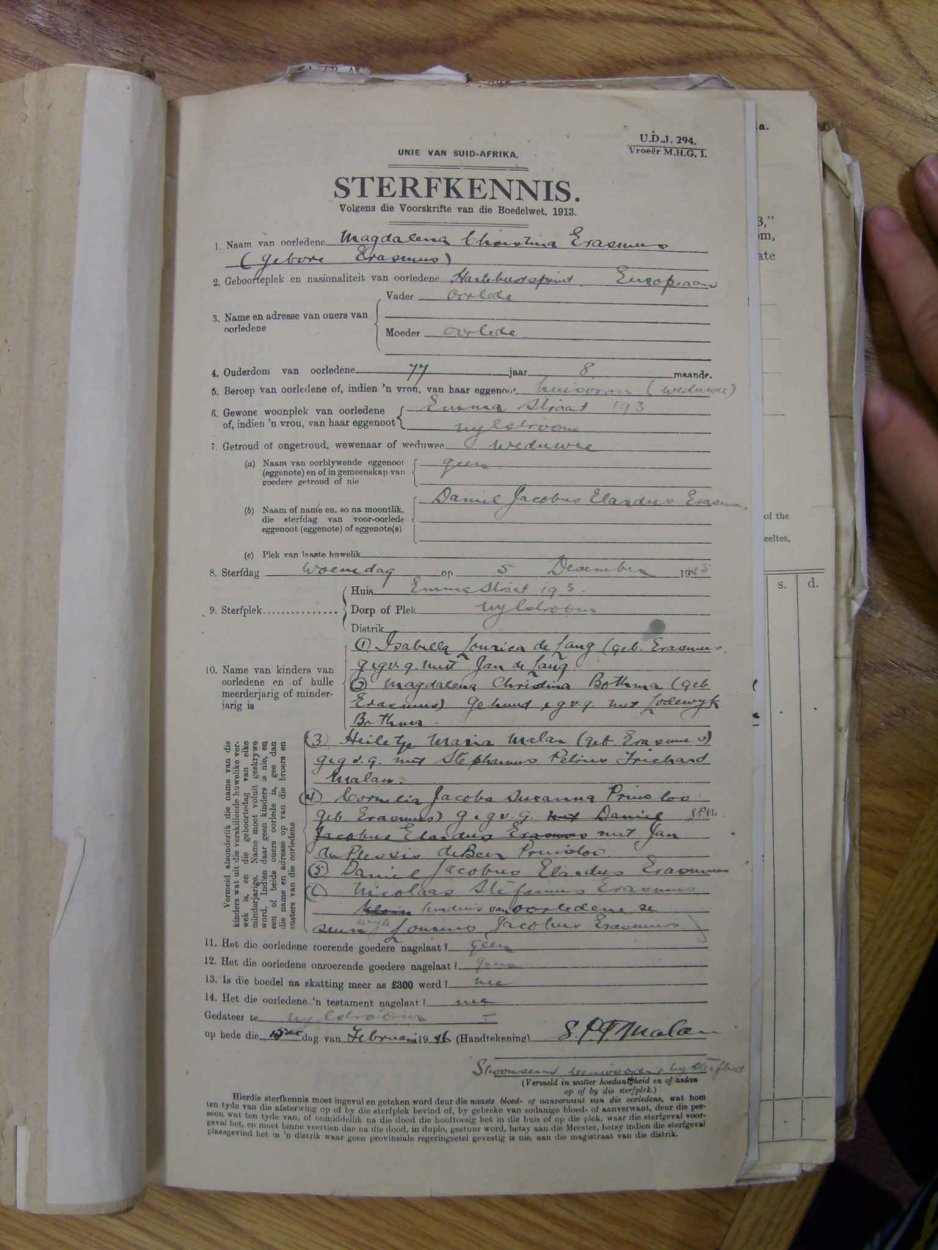 U.D.J. 294.
Vroeër M.H.G. 1.
UNIE VAN SUID-AFRIKA.
STERFKENNIS.
Volgens die Voorskrifte van die Boedelwet, 1913.
1. Naam van oorledene Magdalena Christina Erasmus
(gebore Erasmus)
2. Geboorteplek en nasionaliteit van oorledene European
3. Name en adresse van ouers van oorledene
Vader oorlede
Moeder oorlede
4. Ouderdom van oorledene 77 jaar 8 maande.
5. Beroep van oorledene of, indien 'n vrou, van haar eggenoot huisvrou (weduwee)
6. Gewone woonplek van oorledene of, indien 'n vrou, van haar eggenoot
Emma Straat 193
Nylstroom
7. Getroud of ongetroud, wewenaar of weduwee weduwee
(a) Naam van oorblywende eggenoot (eggenote) en of in gemeenskap van goedere getroud of nie
geen
(b) Naam of name en, so na moontlik, die sterfdag van voor-oorlede eggenoot (eggenote) of eggenote(s)
Daniel Jacobus Elardus Erasmus
(c) Plek van laaste huwelik
8. Sterfdag Woensdag op 5 Desember 1945
9. Sterfplek
Huis Emma Straat 193
Dorp of Plek Nylstroom
Distrik
10. Name van kinders van oorledene en of hulle meerderjarig of minderjarig is
(1) Isabella de Lang (geb. Erasmus
g.e.g.v.g. met Jan de Lang
(2) Magdalena Christina Bothma (geb
Erasmus) getroud g.v.g. met Lodewyk
Bothma
Vermeld afsonderlik die name van die kinders wat uit die verskillende huwelike verwek is, en die geboortedag van elke minderjarige. Name moet voluit geskrywe word. Indien daar geen kinders is nie, en een of beide ouers oorlede is, gee dan die name en adresse op van die broers en susters van die oorledene
(3) Heiletje Maria Malan (geb Erasmus)
g.e.g.v.g. met Stephanus Petrus Trichard
Malan
(4) Cornelia Jacoba Susanna Prinsloo
geb Erasmus) g.e.g.v.g. met Daniel
Jacobus Elardus Erasmus met Jan
du Plessis de Beer Prinsloo
(5) Daniel Jacobus Elardus Erasmus
(6) Nicolaas Stefanus Erasmus
van oorledene se
seun Jacobus Erasmus
11. Het die oorledene roerende goedere nagelaat? geen
12. Het die oorledene onroerende goedere nagelaat? geen
13. Is die boedel na skatting meer as £300 werd? nee
14. Het die oorledene 'n testament nagelaat? nee
Gedateer te Nylstroom
op hede die dag van Februarie 1946 (Handtekening) S.P.T. Malan
Skoonseun
(Vermeld in watter hoedanigheid en of aldan op of by die sterfplek.)
Hierdie sterfkennis moet ingevul en geteken word deur die naaste bloed- of aanverwant van die oorledene, wat hom
ten tyde van die afsterwing op of by die sterfplek bevind of, by gebreke van sodanige bloed- of aanverwant, deur die per-
soon wat ten tyde van, of onmiddellik na die dood die hooftoesig het in die huis of op die plek, waar die sterfgeval voor-
geval het, en moet binne veertien dae na die dood, in duplo, gestuur word, hetsy aan die Meester, hetsy indien die sterfgeval
plaasgevind het in 'n distrik waar geen provinsiale regeringsetel gevestig is nie, aan die magistraat van die distrik.
of the
s. d.